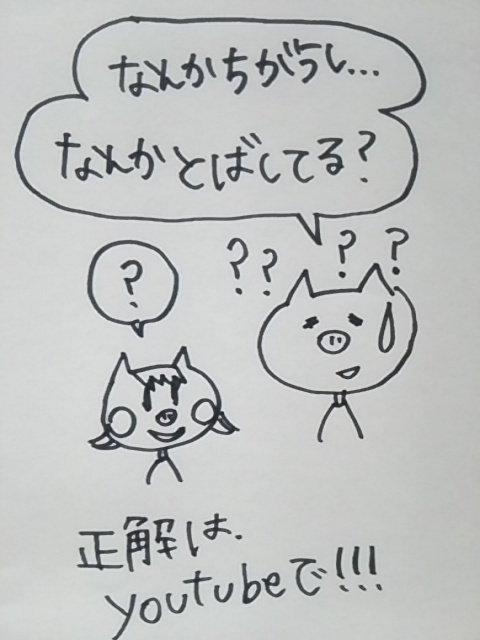 なんかちがうし...
なんかとばしてる?
? ? ? ?
?
正解は、
youtubeで!!!